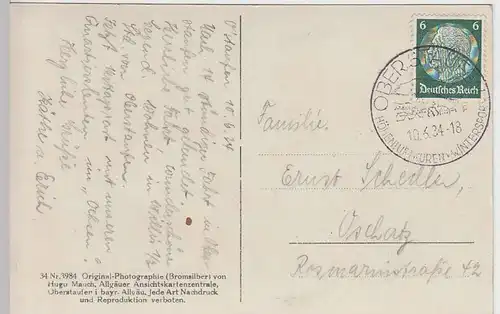 O'staufen 10.6.34
Nach 14 stündiger Fahrt in Ober-
staufen gut gelandet.
Herrliche Fahrt, wunderschöne
Gegend. Wohnen in
Std. von Oberstaufen.
mit unseren
im „Ochsen".
Herzliche Grüße
Käthe u. Erich
34 Nr. 3984 Original-Photographie (Bromsilber) von
Hugo Mauch, Allgäuer Ansichtskartenzentrale,
Oberstaufen i bayr. Allgäu. Jede Art Nachdruck
und Reproduktion verboten.
6 6
Deutsches Reich
OBERST
10.6.34-18
HÖHENLUFTKUREN + WINTERSPORT
Familie
Ernst Schedler,
Oschatz
Rosmarinstraße 42